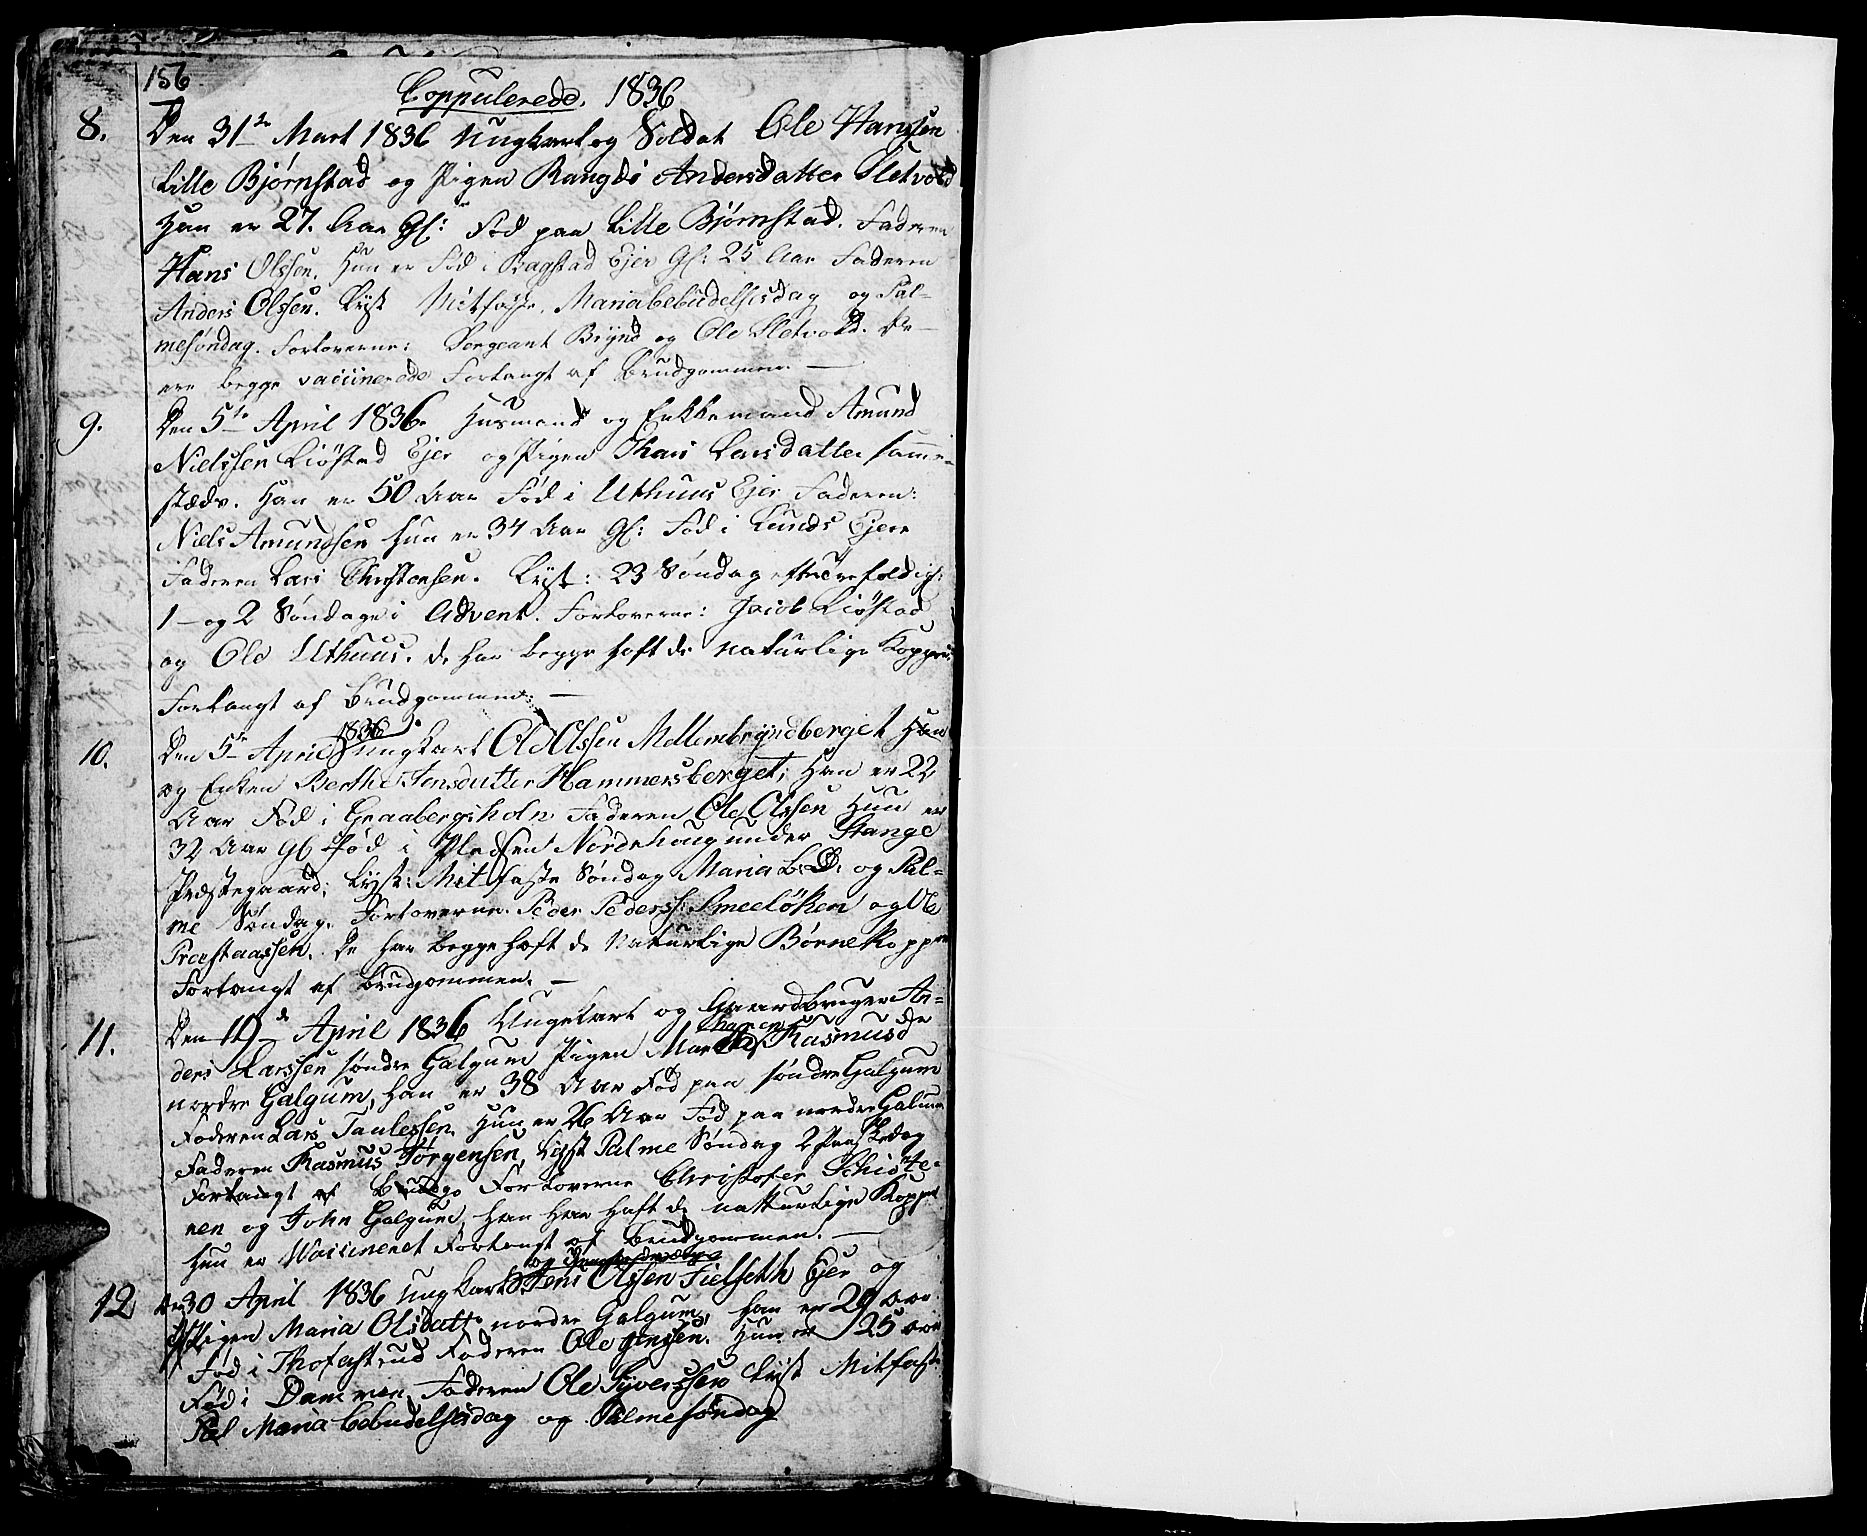 156
Coppulerede. 1836
8. Den 31te Mart 1836 Ungkarl og Soldat Ole Hanssen
Lille Bjørnstad og Pigen Rangdi Andersdatter Sletvold
Han er 27. Aar Gl: Fød paa Lille Bjørnstad. Faderen
Hans Olssen. Hun er Fød i Bagstad Ejer Gl: 25 Aar Faderen
Anders Olssen. Lyst Mitfaste, Mariabebudelsesdag og Pal-
mesøndag. Forloverne: Sergeant Brynd og Ole Sletvold. De
ere begge vaccinerede Forlangt af Brudgommen. —
9. Den 5te April 1836. Husmand og Enkkemand Amund
Nielssen Liøstad Ejer og Pigen Kari Larsdatter samme-
steds. Han er 50 Aar Fød i Uthuus Ejer Faderen:
Niels Amundsen Hun er 34 Aar Gl: Fød i Lunds Ejere
Faderen Lars Christensen. Lyst: 23 Søndag efter Trefoldig:
1 – og 2 Søndage i Advent. Forloverne: Jacob Liøstad
og Ole Uthuus. de har begge haft de naturlige Kopper
Forlangt af Brudgommen: —
10. Den 5te April 1836 Ungkarl Ole Olssen Mellembryndberget Han
og Enken Berthe Hammersberget; Han er 22
Aar Fød i Graabergsholn Faderen Ole Olssen Hun er
32 Aar Gl Fød i Pladsen Nordehoug under Stange
Præstegaard; Lyst: Mitfaste Søndag Maria B: D: og Pal-
me Søndag. Forloverne. Peder Pederss: Smeeløken og Ole
Præstaassen. De har begge haft de Naturlige Børnekopper
Forlangt af Brudgommen. —
11. Den 10de April 1836 Ungekarl og Gaardbruger An-
ders Larssen søndre Galgum Pigen Maren Rasmusd
nordre Galgum, Han er 38 Aar Fød paa søndre Galgum
Faderen Lars Paulessen. Hun er 26 Aar Fød paa nordre Galum
Faderen Rasmus Jørgensen, Lyst Palme Søndag 2 Paaskedag
Forlangt af Brudgo Forloverne Christofer Schiøte-
nen og John Galgum, han har haft de natturlige Kopper
Hun er Waccineret Forlangt af Brudgommen. —
12 den 30 April 1836 Ungkarl Jens Olssen Fielseth Ejer og
Pigen Maria Olsdatt: nordre Galgum, han er 29 Aar
Fød i Thofastrud Faderen Ole Jenssen. Hun er 25 Aar
Fød i Dammen, Faderen Ole Syverssen Lyst Mitfaste
Maria bebudelsesdag og Palmesøndag